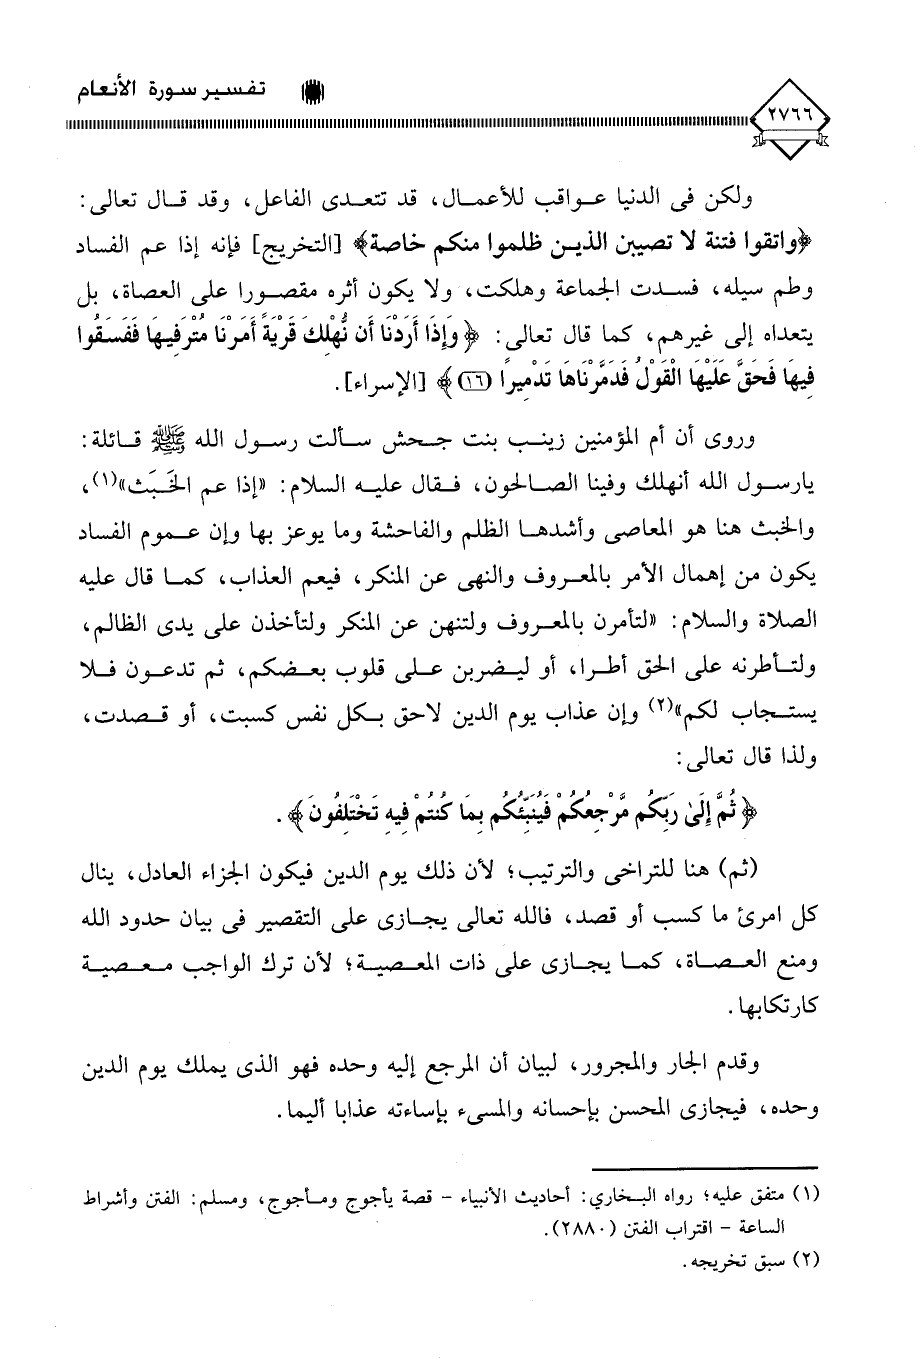 تفسير سورة الأنعام
٢٧٦٦
ولكن فى الدنيا عواقب للأعمال، قد تتعدى الفاعل، وقد قال تعالى:
﴿واتقوا فتنة لا تصيبن الذين ظلموا منكم خاصة﴾ [التخريج] فإنه إذا عم الفساد
وطم سيله، فسدت الجماعة وهلكت، ولا يكون أثره مقصورا على العصاة، بل
يتعداه إلى غيرهم، كما قال تعالى: ﴿وَإِذَا أَرَدْنَا أَن نُّهْلِكَ قَرْيَةً أَمَرْنَا مُتْرَفِيهَا فَفَسَقُوا
فِيهَا فَحَقَّ عَلَيْهَا الْقَوْلُ فَدَمَّرْنَاهَا تَدْمِيرًا (١٦)﴾ [الإسراء].
وروى أن أم المؤمنين زينب بنت جحش سألت رسول الله ﷺ قائلة:
يارسول الله أنهلك وفينا الصالحون، فقال عليه السلام: «إذا عم الخَبَث»(١)،
والخبث هنا هو المعاصى وأشدها الظلم والفاحشة وما يوعز بها وإن عموم الفساد
يكون من إهمال الأمر بالمعروف والنهى عن المنكر، فيعم العذاب، كما قال عليه
الصلاة والسلام: «لتأمرن بالمعروف ولتنهن عن المنكر ولتأخذن على يدى الظالم،
ولتأطرنه على الحق أطرا، أو ليضربن على قلوب بعضكم، ثم تدعون فلا
يستجاب لكم»(٢) وإن عذاب يوم الدين لاحق بكل نفس كسبت، أو قصدت،
ولذا قال تعالى:
﴿ثُمَّ إِلَىٰ رَبِّكُم مَّرْجِعُكُمْ فَيُنَبِّئُكُم بِمَا كُنتُمْ فِيهِ تَخْتَلِفُونَ﴾.
(ثم) هنا للتراخى والترتيب؛ لأن ذلك يوم الدين فيكون الجزاء العادل، ينال
كل امرئ ما كسب أو قصد، فالله تعالى يجازى على التقصير فى بيان حدود الله
ومنع العصاة، كما يجازى على ذات المعصية؛ لأن ترك الواجب معصية
كارتكابها.
وقدم الجار والمجرور، لبيان أن المرجع إليه وحده فهو الذى يملك يوم الدين
وحده، فيجازى المحسن بإحسانه والمسىء بإساءته عذابا أليما.
(١) متفق عليه؛ رواه البخاري: أحاديث الأنبياء - قصة يأجوج ومأجوج، ومسلم: الفتن وأشراط
الساعة - اقتراب الفتن (٢٨٨٠).
(٢) سبق تخريجه.